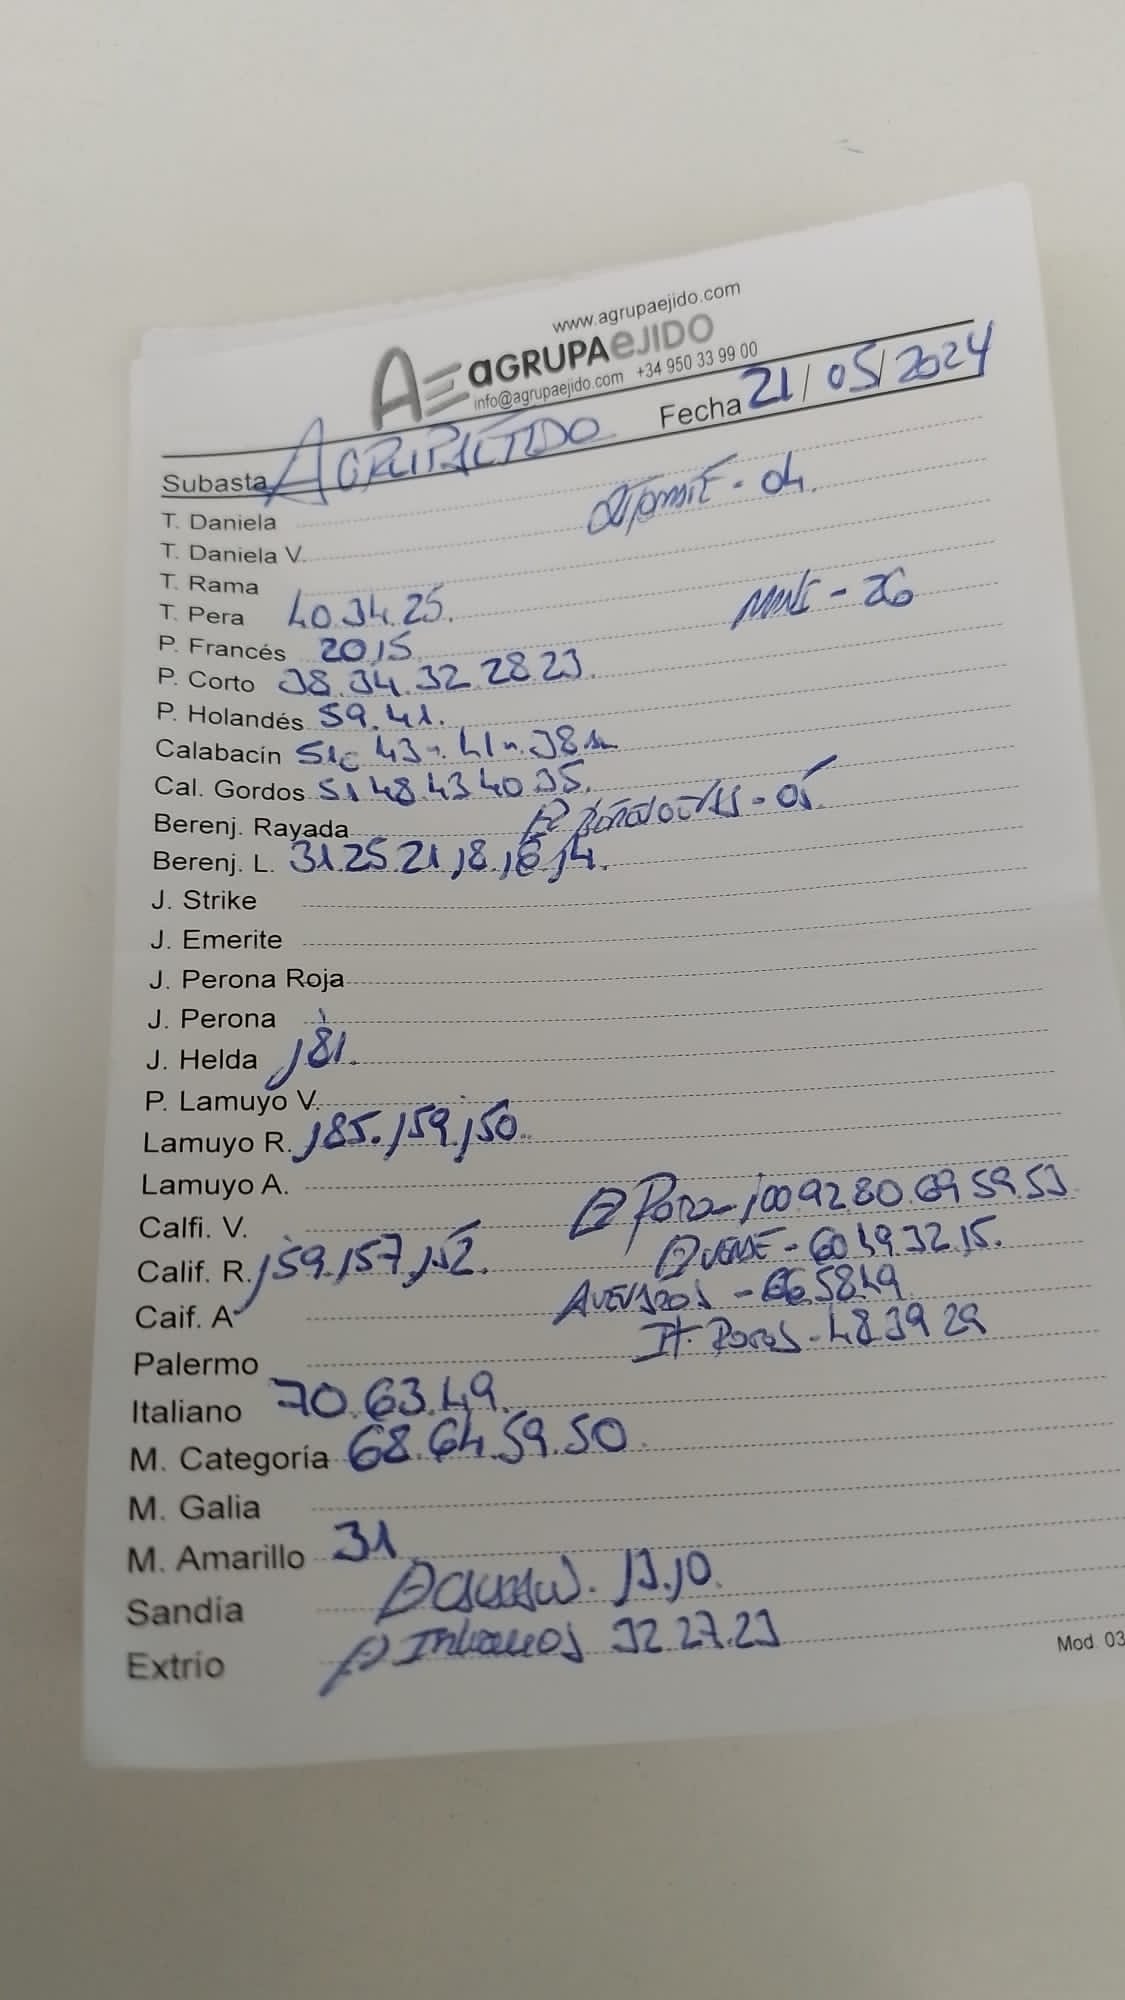 www.agrupaejido.com
AE aGRUPAeJIDO
info@agrupaejido.com +34 950 33 99 00
Subasta AGRUPAEJIDO Fecha 21/05/2024
T. Daniela
T. Daniela V. - 04.
T. Rama
T. Pera 40.34.25. - 26
P. Francés 20.15
P. Corto 38.34.32.28.23.
P. Holandés 59.41.
Calabacín 51 43 41 38
Cal. Gordos 51 48.43 40 35.
Berenj. Rayada - 05
Berenj. L. 31.25.21.18.16.14.
J. Strike
J. Emerite
J. Perona Roja
J. Perona
J. Helda 181.
P. Lamuyo V.
Lamuyo R. 185.159.150.
Lamuyo A.
Calfi. V. - 100 92 80.69 59.53
Calif. R. 159.157.152. - 60 49 32.15.
Caif. A - 66 58 49
Palermo It. - 48 39 29
Italiano 70.63.49.
M. Categoría 68.64.59.50.
M. Galia
M. Amarillo 31
Sandía 13.10.
Extrio 32 27.23
Mod. 03